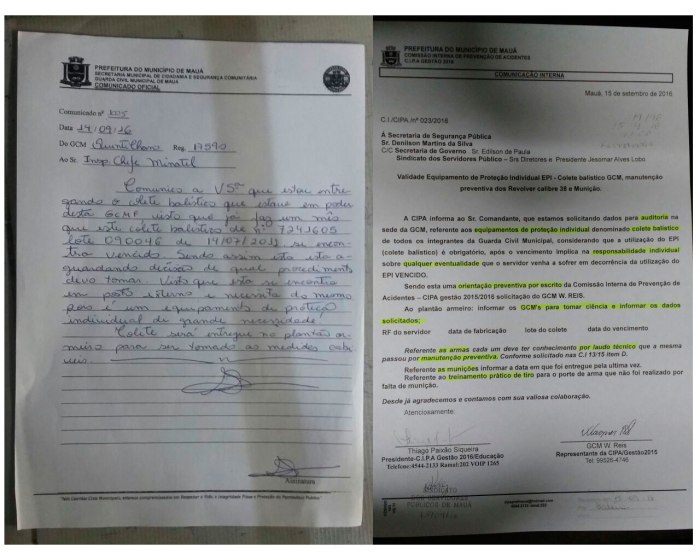 PREFEITURA DO MUNICÍPIO DE MAUÁ
SECRETARIA MUNICIPAL DE CIDADANIA E SEGURANÇA COMUNITÁRIA
GUARDA CIVIL MUNICIPAL DE MAUÁ
COMUNICADO OFICIAL
Comunicado nº
Data 14/09/16
Do GCM Quintilhano Reg. 17590
Ao Sr. Insp. Chefe Minatel
Comunico a VSª que estou entre
gando o colete balístico que estava em poder
desta GCMF, visto que já faz um mês
que este colete balístico de nº 7241605
lote 090046 de 14/07/2011, se encon
tra vencido. Sendo assim esta esta a
guardando decisão de qual procedimento
devo tomar. Visto que esta se encontra
em posto externo e necessita do mesmo
pois é um equipamento de proteção
individual de grande necessidade!
Colete será entregue no plantão ar
meiro para ser tomado as medidas cabí
veis.
Assinatura
PREFEITURA DO MUNICÍPIO DE MAUÁ
COMISSÃO INTERNA DE PREVENÇÃO DE ACIDENTES
C.I.P.A GESTÃO 2016
COMUNICAÇÃO INTERNA
Mauá, 15 de setembro de 2016.
C.I/CIPA.nº 023/2016
À Secretaria de Segurança Pública
Sr. Denilson Martins da Silva
C/C Secretaria de Governo Sr. Edilson de Paula
Sindicato dos Servidores Público – Srs Diretores e Presidente Jesomar Alves Lobo
Validade Equipamento de Proteção Individual EPI - Colete balístico GCM, manutenção
preventiva dos Revolver calibre 38 e Munição.
A CIPA informa ao Sr. Comandante, que estamos solicitando dados para auditoria na
sede da GCM, referente aos equipamentos de proteção individual denominado colete balístico
de todos os integrantes da Guarda Civil Municipal, considerando que a utilização do EPI
(colete balístico) é obrigatório, após o vencimento implica na responsabilidade individual
sobre qualquer eventualidade que o servidor venha a sofrer em decorrência da utilização do
EPI VENCIDO.
Sendo esta uma orientação preventiva por escrito da Comissão Interna de Prevenção de
Acidentes – CIPA gestão 2015/2016 solicitação do GCM W. REIS.
Ao plantão armeiro: informar os GCM's para tomar ciência e informar os dados
solicitados;
RF do servidor data de fabricação lote do colete data do vencimento
Referente as armas cada um deve ter conhecimento por laudo técnico que a mesma
passou por manutenção preventiva. Conforme solicitado nas C.I 13/15 item D.
Referente as munições informar a data em que foi entregue pela ultima vez.
Referente ao treinamento prático de tiro para o porte de arma que não foi realizado por
falta de munição.
Desde já agradecemos e contamos com sua valiosa colaboração.
Atenciosamente:
Thiago Paixão Siqueira
Presidente-C.I.P.A Gestão 2016/Educação
Telefone:4544-2133 Ramal:202 VOIP 1265
GCM W. Reis
Representante da CIPA/Gestão2015
Tel: 99526-4746
SINDICATO
DOS SERVIDORES
PÚBLICOS DE MAUÁ